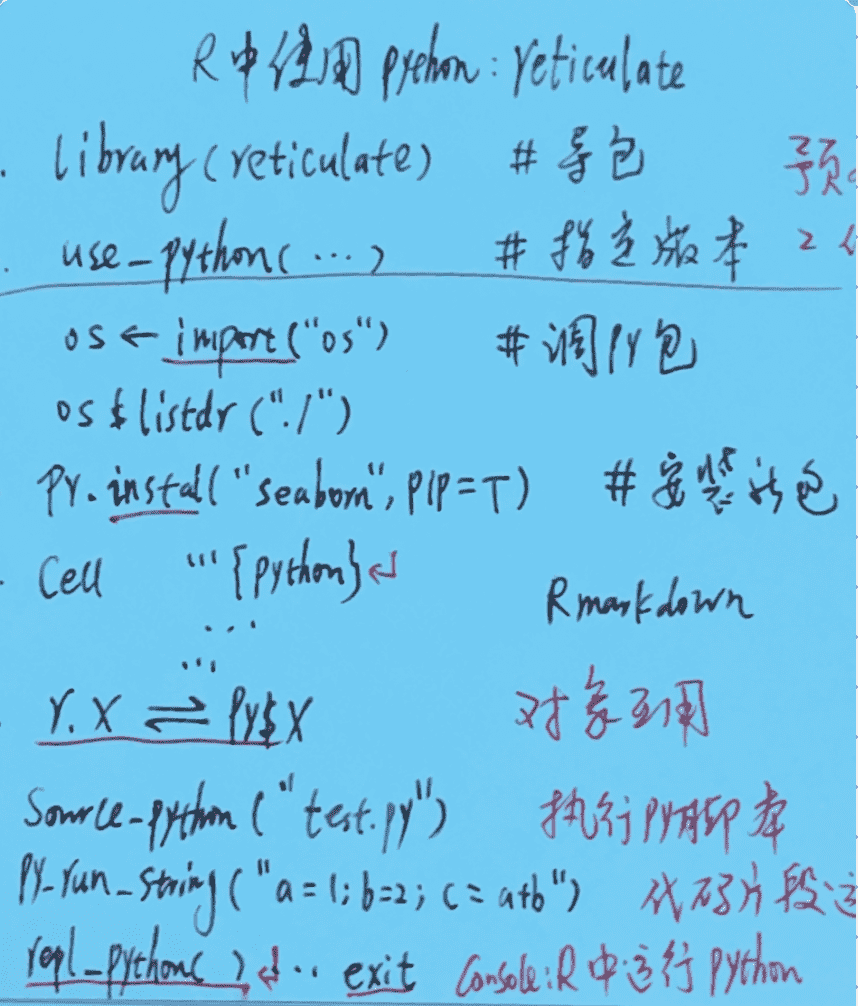 R中使用 python: reticulate
library(reticulate) # 导包 预
use-python(...) # 指定版本 2
os ← import("os") # 调PY包
os $ listdr ("./")
PY.instal("seaborn", PIP=T) # 安装新包
Cell ```{python}↵
... Rmarkdown
```
r.X ⇌ PY$X 对象互用
Source-python ("test.py") 执行PY脚本
PY-run-String("a=1; b=2; c=a+b") 代码片段运
repl-python( )↵ ·· exit Console:R中运行python